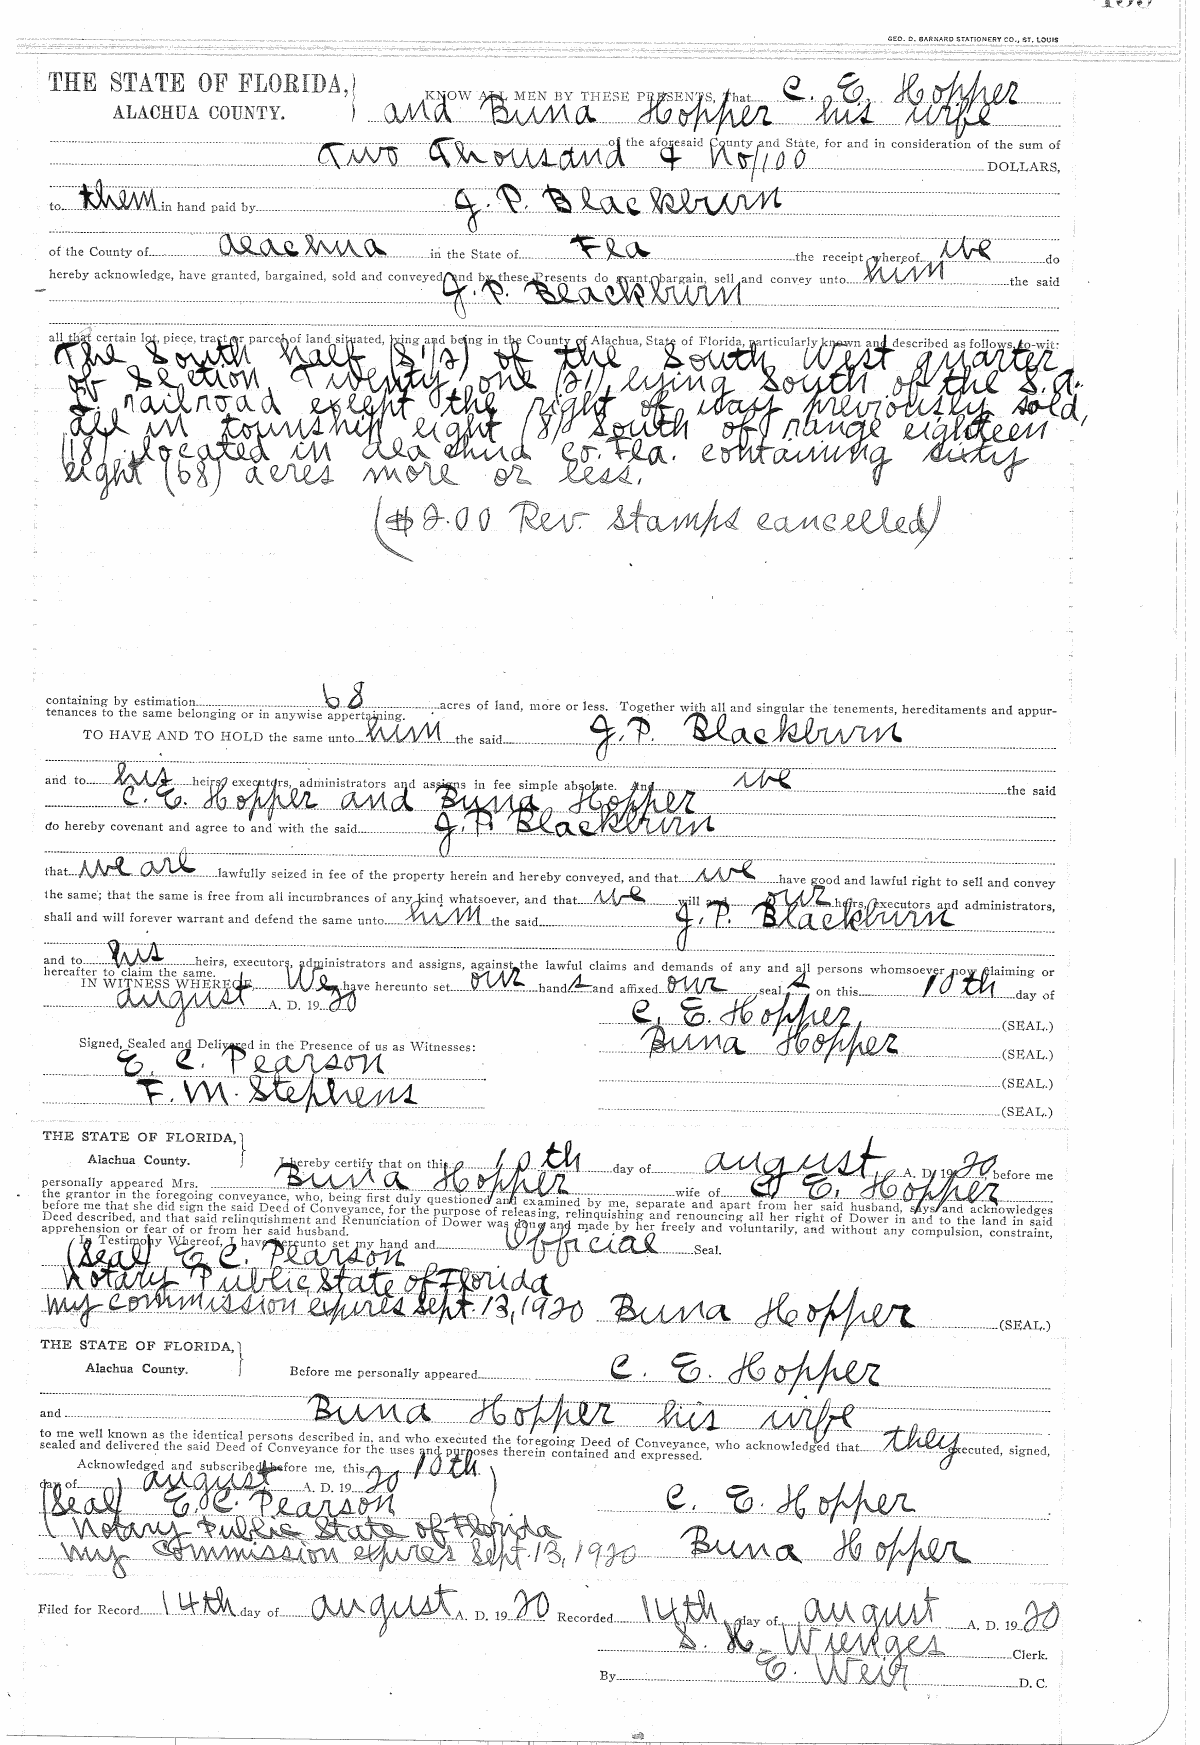 GEO. D. BARNARD STATIONERY CO., ST. LOUIS
THE STATE OF FLORIDA,
ALACHUA COUNTY.
KNOW ALL MEN BY THESE PRESENTS, That C. E. Hopper
and Buna Hopper his wife
of the aforesaid County and State, for and in consideration of the sum of
Two Thousand & No/100 DOLLARS,
to them in hand paid by J. P. Blackburn
of the County of Alachua in the State of Fla the receipt whereof we do
hereby acknowledge, have granted, bargained, sold and conveyed, and by these Presents do grant, bargain, sell and convey unto him the said
J. P. Blackburn
all that certain lot, piece, tract or parcel of land situated, lying and being in the County of Alachua, State of Florida, particularly known and described as follows, to-wit:
The South half (S 1/2) of the South West quarter
of Section Twenty one (21), lying South of the S.A.
L railroad except the right of way previously sold,
all in township eight (8) South of range eighteen
(18), located in Alachua Co. Fla. containing sixty
eight (68) acres more or less.
($2.00 Rev. Stamps cancelled)
containing by estimation 68 acres of land, more or less. Together with all and singular the tenements, hereditaments and appur-
tenances to the same belonging or in anywise appertaining.
TO HAVE AND TO HOLD the same unto him the said J. P. Blackburn
and to his heirs, executors, administrators and assigns in fee simple absolute. And we the said
C. E. Hopper and Buna Hopper
do hereby covenant and agree to and with the said J. P. Blackburn
that we are lawfully seized in fee of the property herein and hereby conveyed, and that we have good and lawful right to sell and convey
the same; that the same is free from all incumbrances of any kind whatsoever, and that we will and our heirs, executors and administrators,
shall and will forever warrant and defend the same unto him the said J. P. Blackburn
and to his heirs, executors, administrators and assigns, against the lawful claims and demands of any and all persons whomsoever now claiming or
hereafter to claim the same.
IN WITNESS WHEREOF, We have hereunto set our hands and affixed our seal s on this 10th day of
August A. D. 1920
C. E. Hopper (SEAL.)
Signed, Sealed and Delivered in the Presence of us as Witnesses:
Buna Hopper (SEAL.)
E. C. Pearson
(SEAL.)
F. M. Stephens
(SEAL.)
THE STATE OF FLORIDA,
Alachua County.
I hereby certify that on this 10th day of August A. D. 1920, before me
personally appeared Mrs. Buna Hopper wife of C E. Hopper
the grantor in the foregoing conveyance, who, being first duly questioned and examined by me, separate and apart from her said husband, says and acknowledges
before me that she did sign the said Deed of Conveyance, for the purpose of releasing, relinquishing and renouncing all her right of Dower in and to the land in said
Deed described, and that said relinquishment and Renunciation of Dower was done and made by her freely and voluntarily, and without any compulsion, constraint,
apprehension or fear of or from her said husband.
In Testimony Whereof, I have hereunto set my hand and Official Seal.
(Seal) E. C. Pearson
Notary Public State of Florida
My commission expires Sept. 13, 1920 Buna Hopper (SEAL.)
THE STATE OF FLORIDA,
Alachua County.
Before me personally appeared C. E. Hopper
and Buna Hopper his wife
to me well known as the identical persons described in, and who executed the foregoing Deed of Conveyance, who acknowledged that they executed, signed,
sealed and delivered the said Deed of Conveyance for the uses and purposes therein contained and expressed.
Acknowledged and subscribed before me, this 10th
day of August A. D. 1920
(Seal) E. C. Pearson C. E. Hopper
Notary Public State of Florida
My Commission expires Sept. 13, 1920 Buna Hopper
Filed for Record 14th day of August A. D. 1920 Recorded 14th day of August A. D. 1920
S. H. Wienges Clerk.
By E. Weir D. C.